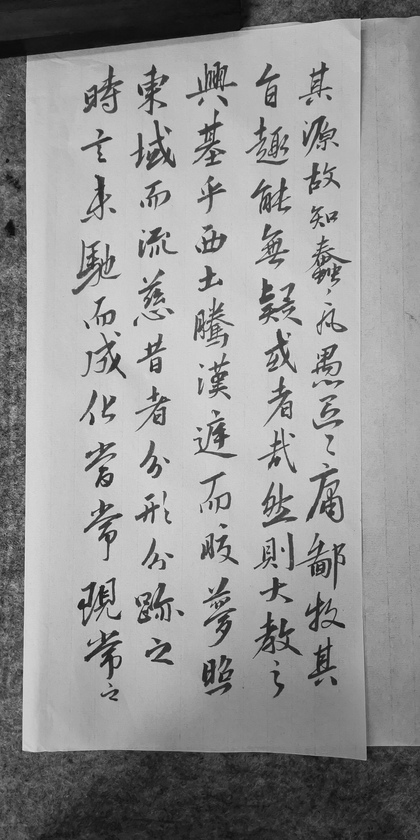 其源故知蠢々凡愚區々庸鄙投其
旨趣能無疑或者哉然則大教之
興基乎西土騰漢庭而皎夢照
東域而流慈昔者分形分跡之
時言未馳而成化當常現常之